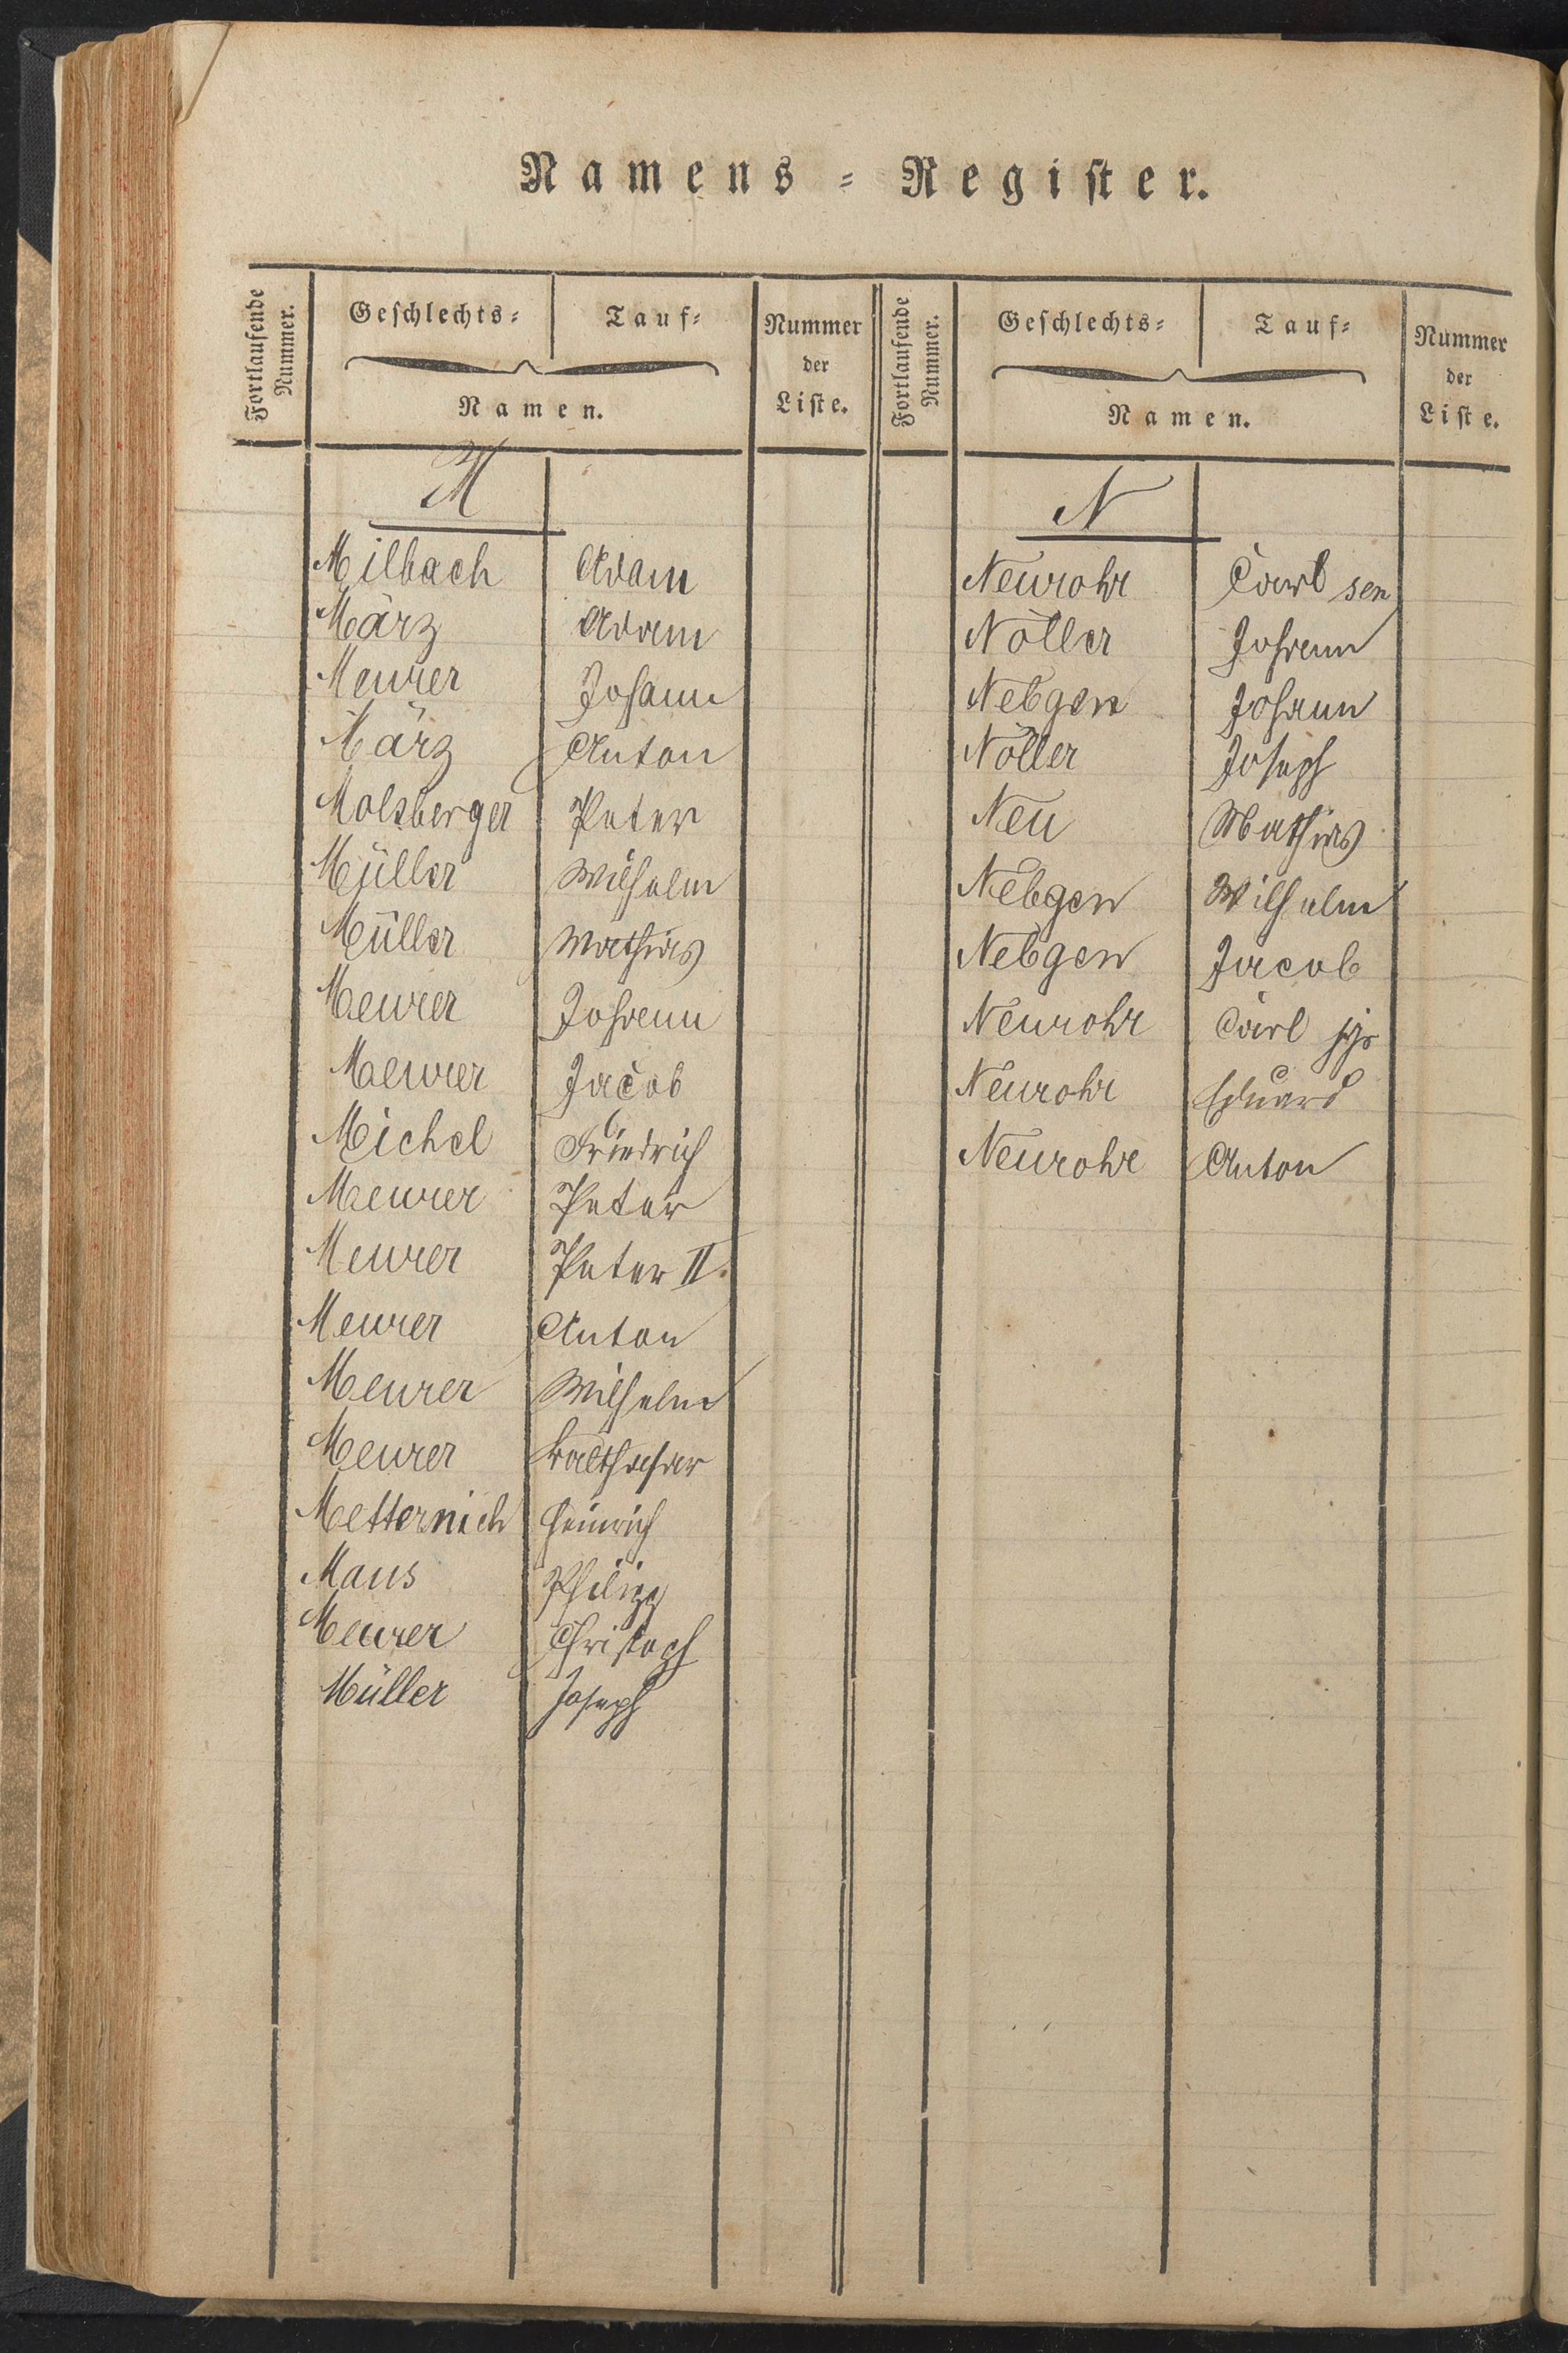 Namens-Register.
Fortlaufende Nummer.
Geschlechts- Tauf-
Namen.
Nummer der Liste.
M
Milbach Adam
März Adam
Meurer Johann
März Anton
Molsberger Peter
Müller Wilhelm
Müller Mathias
Meurer Johann
Meurer Jacob
Michel Friedrich
Meurer Peter
Meurer Peter II.
Meurer Anton
Meurer Wilhelm
Meurer Balthasar
Metternich Heinrich
Maus Philipp
Meurer Christoph
Müller Joseph
Fortlaufende Nummer.
Geschlechts- Tauf-
Namen.
Nummer der Liste.
N
Neurohr Carl sen
Nöller Johann
Nebgen Johann
Nöller Joseph
Neu Mathias
Nebgen Wilhelm
Nebgen Jacob
Neurohr Carl jgr
Neurohr Eduard
Neurohr Anton